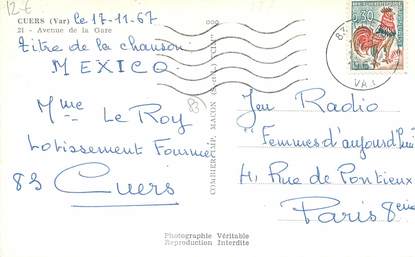 12€
CUERS (Var) le 17-11-67
21 - Avenue de la Gare
titre de la chanson
MEXICO
Mme Le Roy
Lotissement Fournier
83 Cuers
83
COMBIER IMP. MACON
Jeu Radio
"Femmes d'aujourd'hui"
41, Rue de Ponthieu
Paris 8eme
Photographie Véritable
Reproduction Interdite
0,30
83
VAR